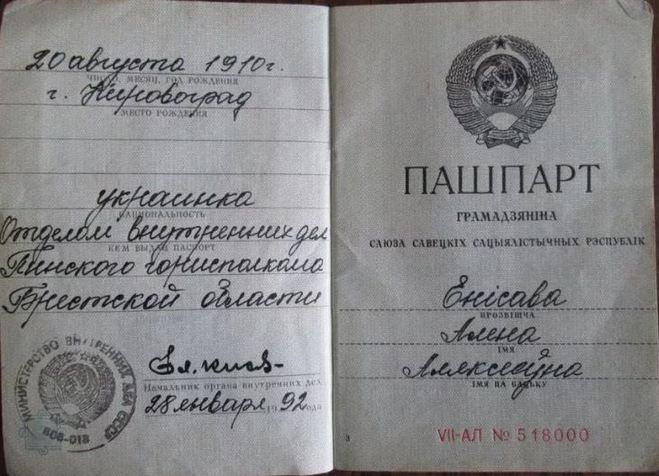 20 августа 1910 г.
ЧИСЛО, МЕСЯЦ, ГОД РОЖДЕНИЯ
г. Кировоград
МЕСТО РОЖДЕНИЯ
украинка
НАЦИОНАЛЬНОСТЬ
Отделом внутренних дел
КЕМ ВЫДАН ПАСПОРТ
Пинского горисполкома
Брестской области
МИНИСТЕРСТВО ВНУТРЕННИХ ДЕЛ СССР
608-013
Начальник органа внутренних дел
28 января 1992 года
ПАШПАРТ
ГРАМАДЗЯНІНА
САЮЗА САВЕЦКІХ САЦЫЯЛІСТЫЧНЫХ РЭСПУБЛІК
Енісава
ПРОЗВІШЧА
Алена
ІМЯ
Аляксеўна
ІМЯ ПА БАЦЬКУ
3
VII-АЛ № 518000